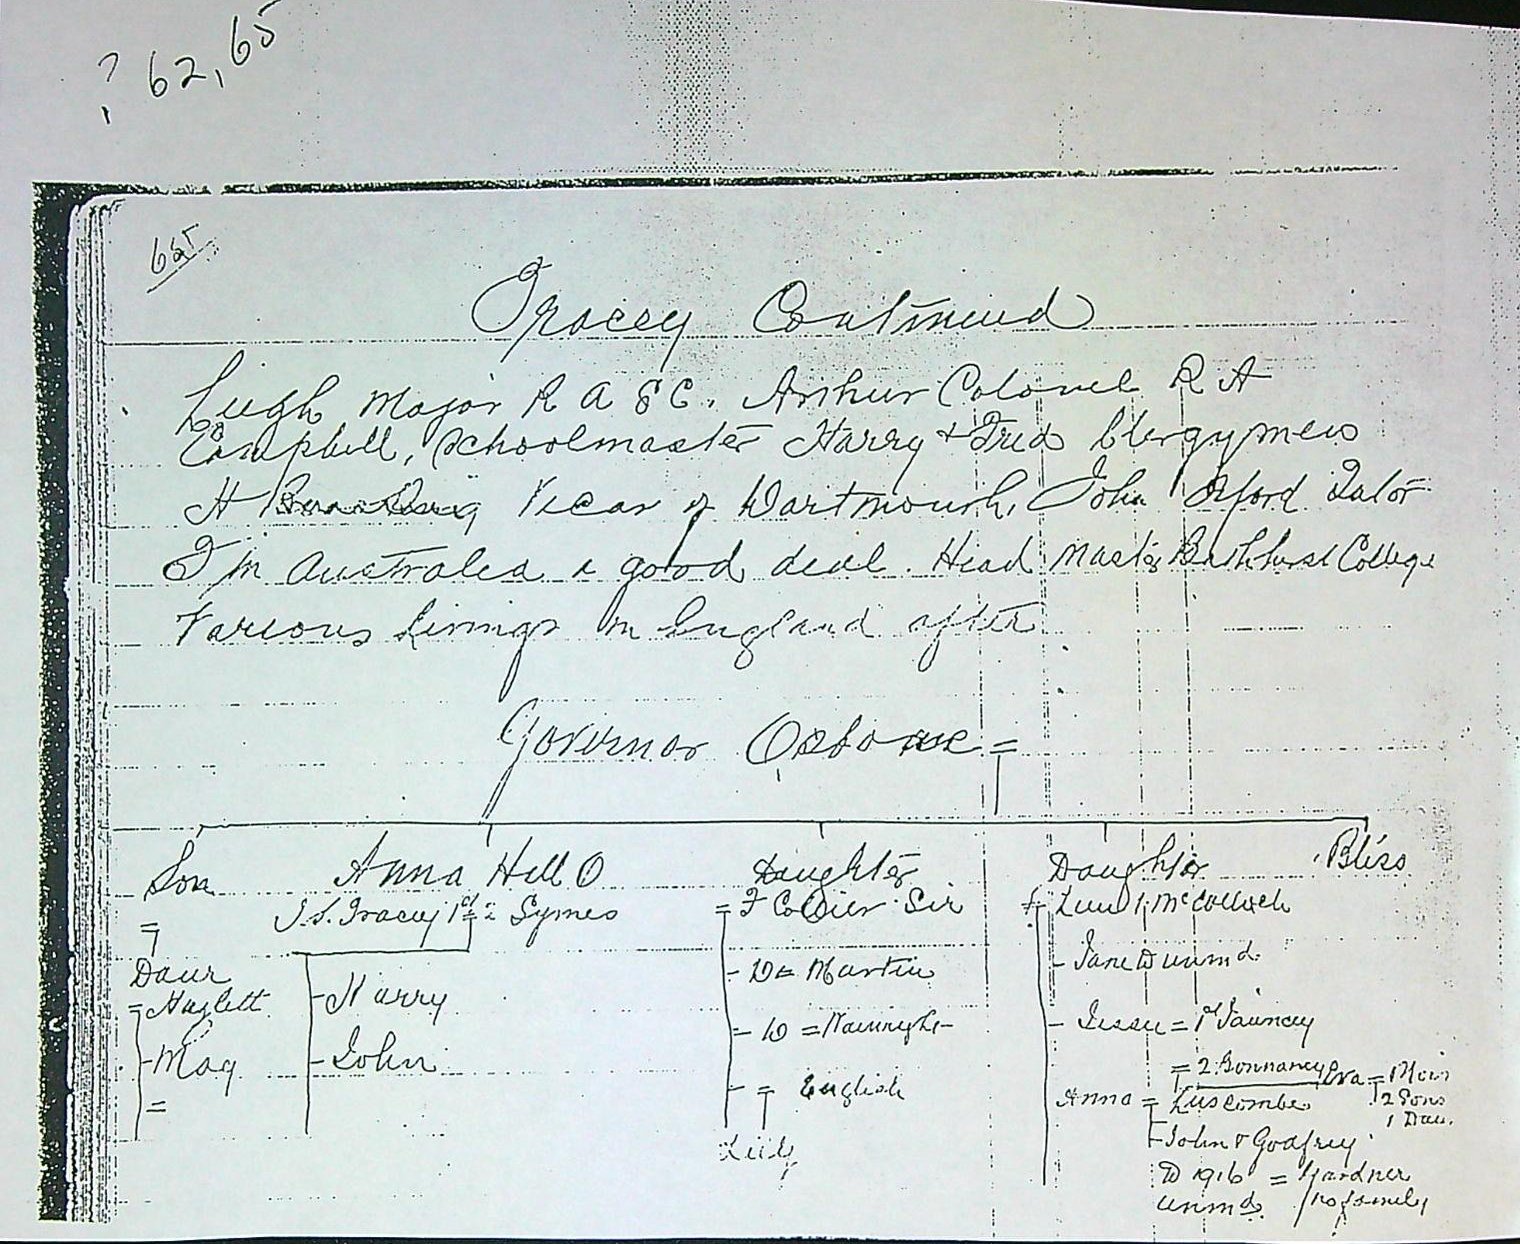 ? 62, 65
65
Tracey Continued
Leigh Major R A S C. Arthur Colonel R A
Campbell, Schoolmaster Harry + Fred Clergymen
H Vicar of Dartmouth, John Oxford Tutor
I in Australia a good deal. Head Master Bathhurst College
Various Livings in England after
Governor Osborne =
Son Anna Hill O Daughter Daughter Bliss
= J.S. Tracey 1st = 2 Symes = F Collier Sir = 1. McCulloch
Daur
= Hazlett - Harry - D = Martin - Jane D unmd.
- May - John - D = - Jessie = 1st Tauncey
= - = English = 2. Bonnancy Eva = 1 Moir
Lily Anna = Luscombe 2 Sons
1 Dau.
- John & Godfrey
D 1916 = Gardner
unmd. no family